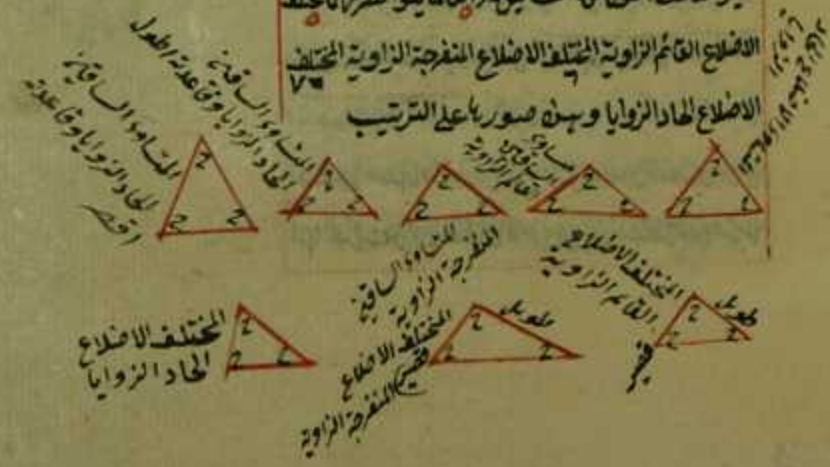 الاضلاع القائم الزاوية المختلف الاضلاع المنفرجة الزاوية المختلف
الاضلاع الحاد الزوايا وهذه صورها على الترتيب
المتساوى الاضلاع الحاد الزوايا
متساوى
الساقين
قائم الزاوية
المتساوى الساقين
الحاد الزوايا وقاعدته اطول
المتساوى الساقين
الحاد الزوايا وقاعدته
اقصر
المتساوى الساقين
المنفرجة الزاوية
المختلف الاضلاع
القائم الزاوية
طويل
قصير
المختلف الاضلاع
المنفرجة الزاوية
طويل
قصير
المختلف الاضلاع
الحاد الزوايا